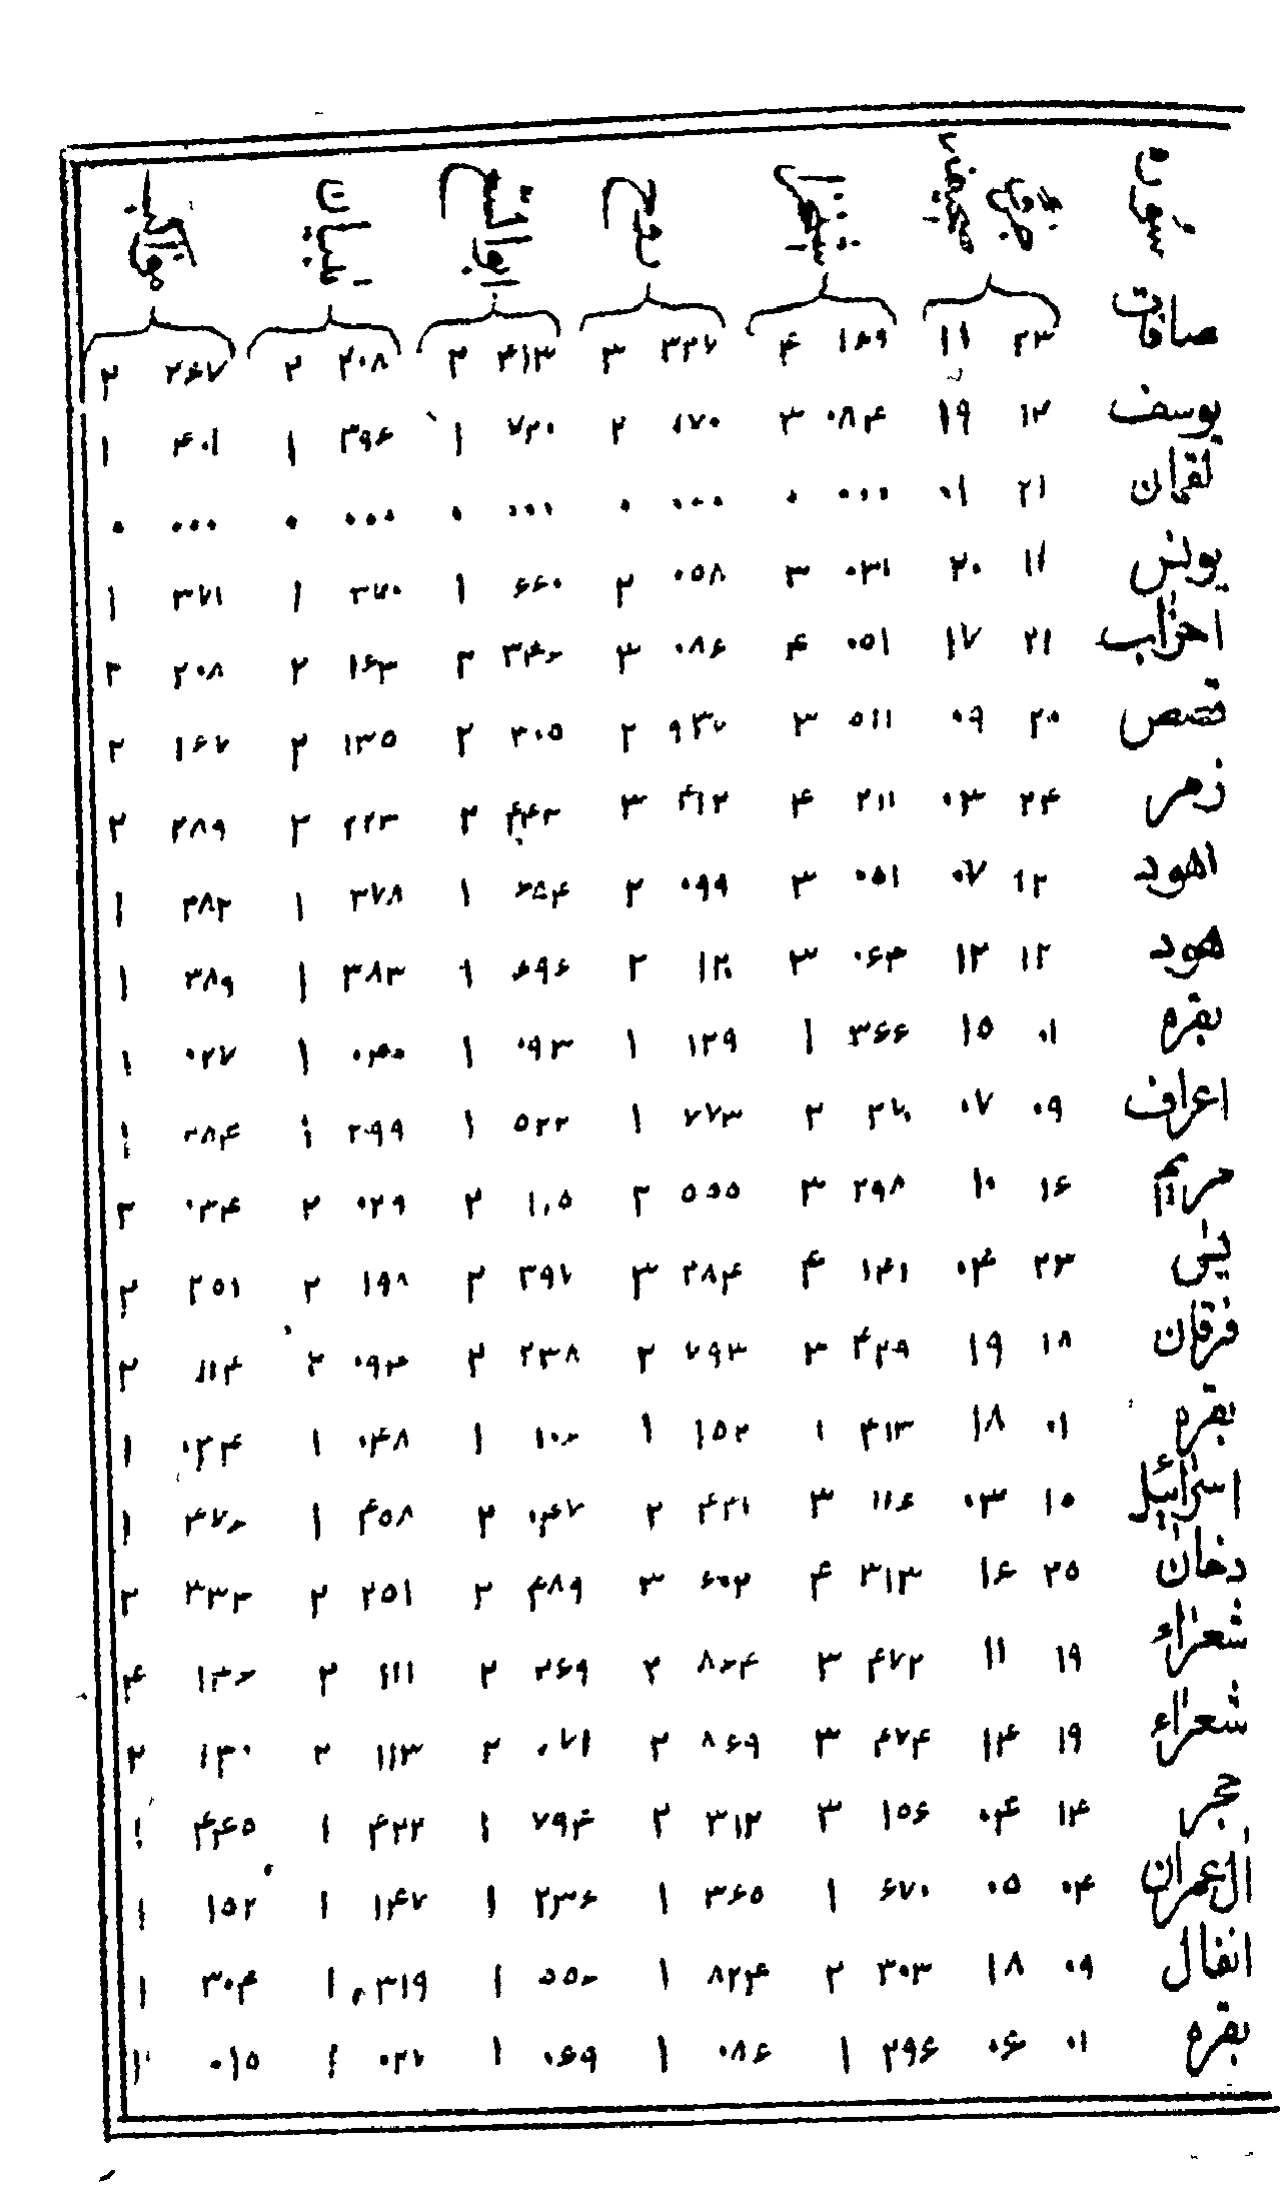 سوره جزو صحیفه تبیان ابوالفتح روح مواکب
صافات ۲۳ ۱۱ ۱۶۹ ۴ ۳۲۷ ۳ ۴۱۳ ۲ ۲۰۸ ۲ ۲۶۷ ۲
یوسف ۱۲ ۱۹ ۰۸۴ ۳ ۱۷۰ ۲ ۷۲۰ ۱ ۳۹۶ ۱ ۴۰۱ ۱
لقمان ۲۱ ۰۱ ۰۰۰ ۰ ۰۰۰ ۰ ۰۰۰ ۰ ۰۰۰ ۰ ۰۰۰ ۰
یونس ۱۱ ۲۰ ۰۳۱ ۳ ۰۵۸ ۲ ۶۶۰ ۱ ۳۷۰ ۱ ۳۷۱ ۱
احزاب ۲۱ ۱۷ ۰۵۱ ۴ ۰۸۶ ۳ ۳۴۶ ۲ ۱۶۳ ۲ ۲۰۸ ۲
قصص ۲۰ ۰۹ ۵۱۱ ۳ ۹۳۷ ۲ ۳۰۵ ۲ ۱۳۵ ۲ ۱۶۷ ۲
زمر ۲۴ ۰۳ ۲۱۱ ۴ ۴۱۲ ۳ ۴۴۲ ۲ ۲۲۳ ۲ ۲۸۹ ۲
هود ۱۲ ۰۷ ۰۵۱ ۳ ۰۹۹ ۲ ۶۸۴ ۱ ۳۷۸ ۱ ۳۸۲ ۱
هود ۱۲ ۱۲ ۰۶۳ ۳ ۱۲۰ ۲ ۶۹۶ ۱ ۳۸۳ ۱ ۳۸۹ ۱
بقره ۰۱ ۱۵ ۳۶۶ ۱ ۱۲۹ ۱ ۰۹۳ ۱ ۰۴۰ ۱ ۰۲۷ ۱
اعراف ۰۹ ۰۷ ۲۷۰ ۲ ۷۷۳ ۱ ۵۲۲ ۱ ۲۹۹ ۱ ۲۸۴ ۱
مریم ۱۶ ۱۰ ۲۹۸ ۳ ۵۵۵ ۲ ۱۰۵ ۲ ۰۲۹ ۲ ۰۳۴ ۲
یس ۲۳ ۰۴ ۱۴۱ ۴ ۲۸۴ ۳ ۳۹۷ ۲ ۱۹۸ ۲ ۲۵۱ ۲
فرقان ۱۸ ۱۹ ۴۲۹ ۳ ۷۹۳ ۲ ۲۳۸ ۲ ۰۹۳ ۲ ۱۱۴ ۲
بقره ۰۱ ۱۸ ۴۱۳ ۱ ۱۵۲ ۱ ۱۰۶ ۱ ۰۴۸ ۱ ۰۳۴ ۱
اسرائیل ۱۵ ۰۳ ۱۱۶ ۳ ۴۲۱ ۲ ۰۴۷ ۲ ۴۵۸ ۱ ۴۷۶ ۱
دخان ۲۵ ۱۶ ۳۱۳ ۴ ۶۰۲ ۳ ۴۸۹ ۲ ۲۵۱ ۲ ۳۳۲ ۲
شعراء ۱۹ ۱۱ ۴۷۲ ۳ ۸۶۴ ۲ ۲۶۹ ۲ ۱۱۱ ۲ ۱۳۶ ۲
شعراء ۱۹ ۱۴ ۴۷۴ ۳ ۸۶۹ ۲ ۰۷۱ ۲ ۱۱۳ ۲ ۱۳۰ ۲
حجر ۱۴ ۰۴ ۱۵۶ ۳ ۳۱۲ ۲ ۷۹۴ ۱ ۴۲۲ ۱ ۴۴۵ ۱
آل عمران ۰۴ ۰۵ ۶۷۰ ۱ ۳۶۵ ۱ ۲۳۶ ۱ ۱۴۷ ۱ ۱۵۲ ۱
انفال ۰۹ ۱۸ ۳۰۳ ۲ ۸۲۴ ۱ ۵۵۶ ۱ ۳۱۹ ۱ ۳۰۴ ۱
بقره ۰۱ ۰۶ ۲۹۶ ۱ ۰۸۶ ۱ ۰۶۹ ۱ ۰۲۷ ۱ ۰۱۵ ۱